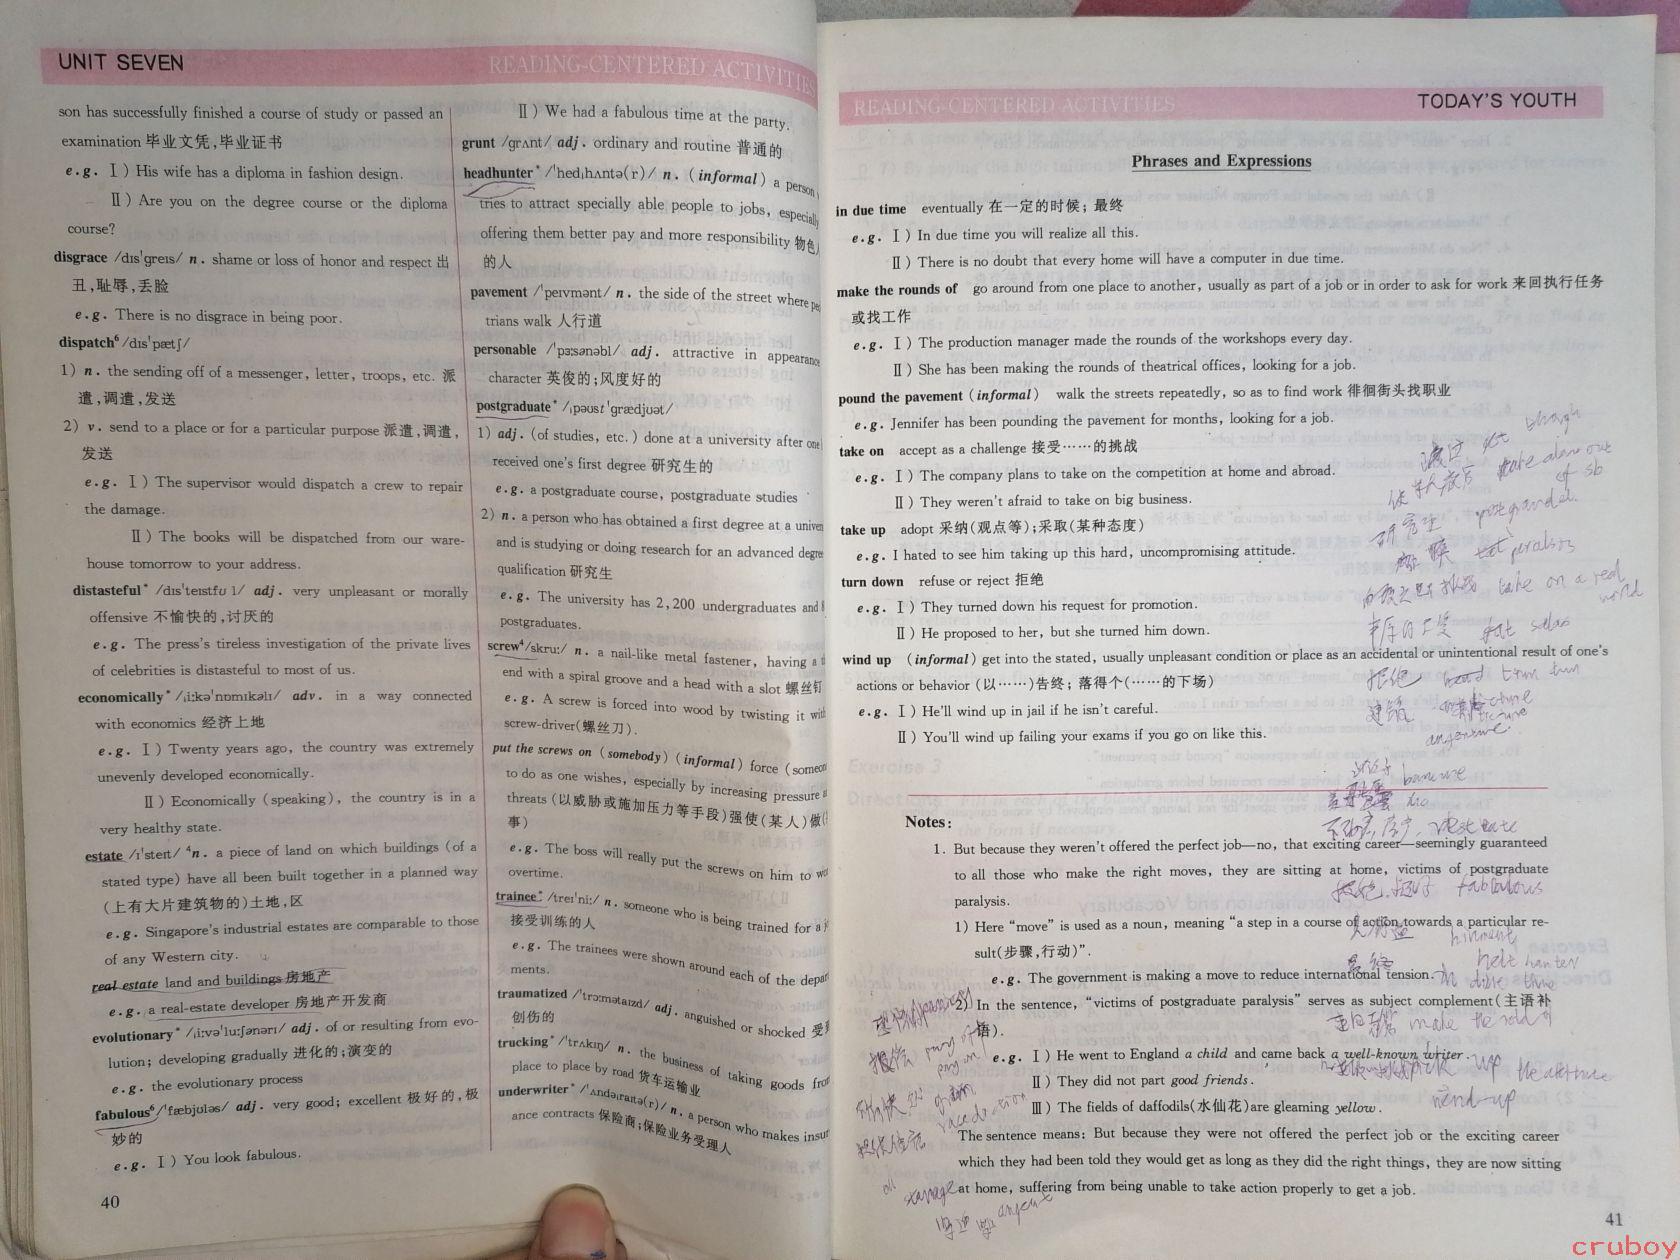 UNIT SEVEN
READING-CENTERED ACTIVITIES
son has successfully finished a course of study or passed an
examination 毕业文凭,毕业证书
e.g. Ⅰ) His wife has a diploma in fashion design.
Ⅱ) Are you on the degree course or the diploma
course?
disgrace /dɪs'greɪs/ n. shame or loss of honor and respect 出
丑,耻辱,丢脸
e.g. There is no disgrace in being poor.
dispatch⁶ /dɪs'pætʃ/
1) n. the sending off of a messenger, letter, troops, etc. 派
遣,调遣,发送
2) v. send to a place or for a particular purpose 派遣,调遣,
发送
e.g. Ⅰ) The supervisor would dispatch a crew to repair
the damage.
Ⅱ) The books will be dispatched from our ware-
house tomorrow to your address.
distasteful* /dɪs'teɪstfʊl/ adj. very unpleasant or morally
offensive 不愉快的,讨厌的
e.g. The press's tireless investigation of the private lives
of celebrities is distasteful to most of us.
economically* /ˌiːkə'nɒmɪkəlɪ/ adv. in a way connected
with economics 经济上地
e.g. Ⅰ) Twenty years ago, the country was extremely
unevenly developed economically.
Ⅱ) Economically (speaking), the country is in a
very healthy state.
estate /ɪ'steɪt/ ⁴n. a piece of land on which buildings (of a
stated type) have all been built together in a planned way
(上有大片建筑物的)土地,区
e.g. Singapore's industrial estates are comparable to those
of any Western city.
real estate land and buildings 房地产
e.g. a real-estate developer 房地产开发商
evolutionary* /ˌiːvə'luːʃənərɪ/ adj. of or resulting from evo-
lution; developing gradually 进化的;演变的
e.g. the evolutionary process
fabulous⁶ /'fæbjʊləs/ adj. very good; excellent 极好的,极
妙的
e.g. Ⅰ) You look fabulous.
40
Ⅱ) We had a fabulous time at the party.
grunt /grʌnt/ adj. ordinary and routine 普通的
headhunter* /'hedˌhʌntə(r)/ n. (informal) a person
tries to attract specially able people to jobs, especially
offering them better pay and more responsibility 物色
的人
pavement /'peɪvmənt/ n. the side of the street where
trians walk 人行道
personable /'pɜːsənəbl/ adj. attractive in appearance
character 英俊的;风度好的
postgraduate* /ˌpəʊst'grædjuət/
1) adj. (of studies, etc.) done at a university after one
received one's first degree 研究生的
e.g. a postgraduate course, postgraduate studies
2) n. a person who has obtained a first degree at a
and is studying or doing research for an advanced degree
qualification 研究生
e.g. The university has 2,200 undergraduates and
postgraduates.
screw⁴ /skruː/ n. a nail-like metal fastener, having a
end with a spiral groove and a head with a slot 螺丝钉
e.g. A screw is forced into wood by twisting it with
screw-driver(螺丝刀).
put the screws on (somebody) (informal) force (someone
to do as one wishes, especially by increasing pressure
threats (以威胁或施加压力等手段)强使(某人)做(
事)
e.g. The boss will really put the screws on him to
overtime.
trainee* /treɪ'niː/ n. someone who is being trained for a
接受训练的人
e.g. The trainees were shown around each of the
ments.
traumatized /'trɔːmətaɪzd/ adj. anguished or shocked 受
创伤的
trucking* /'trʌkɪŋ/ n. the business of taking goods from
place to place by road 货车运输业
underwriter* /'ʌndəraɪtə(r)/ n. a person who makes
ance contracts 保险商;保险业务受理人
READING-CENTERED ACTIVITIES
TODAY'S YOUTH
Phrases and Expressions
in due time eventually 在一定的时候;最终
e.g. Ⅰ) In due time you will realize all this.
Ⅱ) There is no doubt that every home will have a computer in due time.
make the rounds of go around from one place to another, usually as part of a job or in order to ask for work 来回执行任务
或找工作
e.g. Ⅰ) The production manager made the rounds of the workshops every day.
Ⅱ) She has been making the rounds of theatrical offices, looking for a job.
pound the pavement (informal) walk the streets repeatedly, so as to find work 徘徊街头找职业
e.g. Jennifer has been pounding the pavement for months, looking for a job.
take on accept as a challenge 接受……的挑战
e.g. Ⅰ) The company plans to take on the competition at home and abroad.
Ⅱ) They weren't afraid to take on big business.
take up adopt 采纳(观点等);采取(某种态度)
e.g. I hated to see him taking up this hard, uncompromising attitude.
turn down refuse or reject 拒绝
e.g. Ⅰ) They turned down his request for promotion.
Ⅱ) He proposed to her, but she turned him down.
wind up (informal) get into the stated, usually unpleasant condition or place as an accidental or unintentional result of one's
actions or behavior (以……)告终;落得个(……的下场)
e.g. Ⅰ) He'll wind up in jail if he isn't careful.
Ⅱ) You'll wind up failing your exams if you go on like this.
Notes:
1. But because they weren't offered the perfect job—no, that exciting career—seemingly guaranteed
to all those who make the right moves, they are sitting at home, victims of postgraduate
paralysis.
1) Here "move" is used as a noun, meaning "a step in a course of action towards a particular re-
sult(步骤,行动)".
e.g. The government is making a move to reduce international tension.
2) In the sentence, "victims of postgraduate paralysis" serves as subject complement(主语补
语).
e.g. Ⅰ) He went to England a child and came back a well-known writer.
Ⅱ) They did not part good friends.
Ⅲ) The fields of daffodils(水仙花)are gleaming yellow.
The sentence means: But because they were not offered the perfect job or the exciting career
which they had been told they would get as long as they did the right things, they are now sitting
at home, suffering from being unable to take action properly to get a job.
41
cruboy